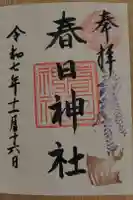 奉拝
春日神社
令和七年十一月六日